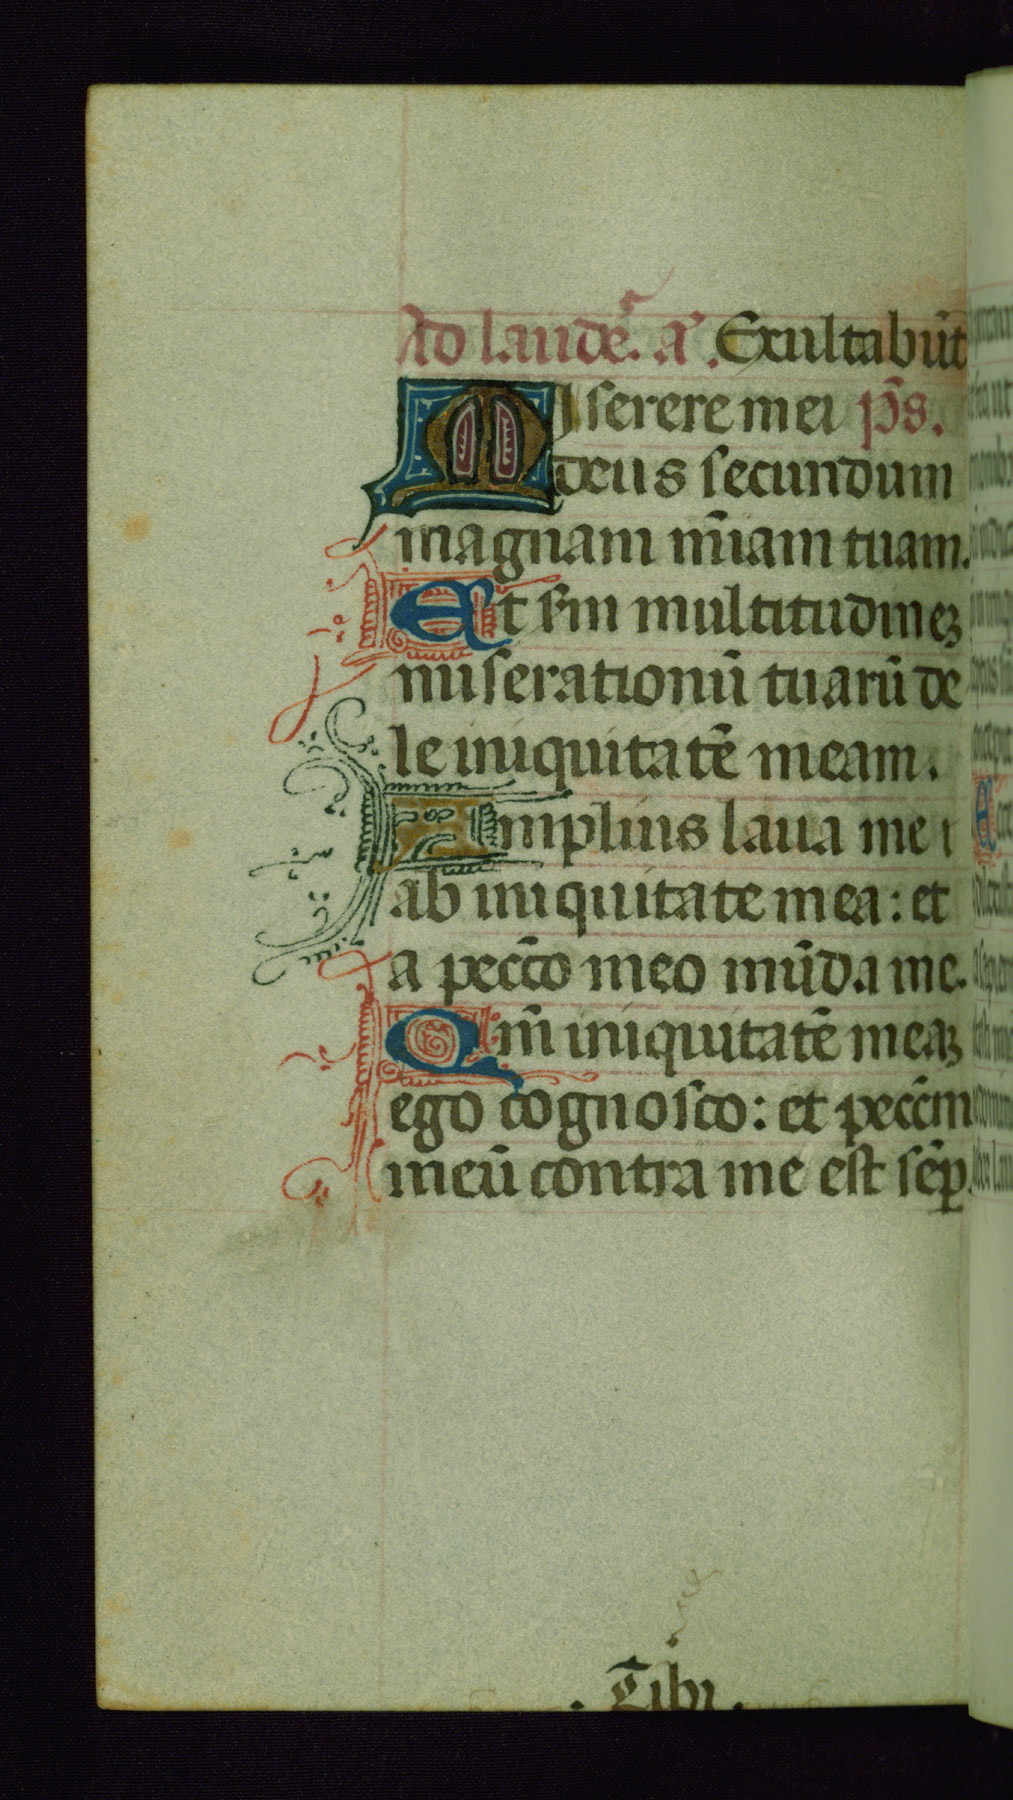 Ad laudeᷣ. añ. Exultabūt
Miserere mei p̄s.
deus secundum
magnam m̄iam tuam.
Et s̄m multitudineꝫ
miserationū tuarū de
le iniquitatē meam.
Amplius laua me
ab iniquitate mea: et
a pecc̄o meo mūda me.
Qm̄ iniquitatē meaꝫ
ego cognosco: et pecc̄m
meū contra me est semꝑ.
Tibi.